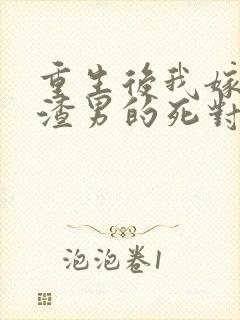 重生後我嫁
渣男的死對
泡泡卷1